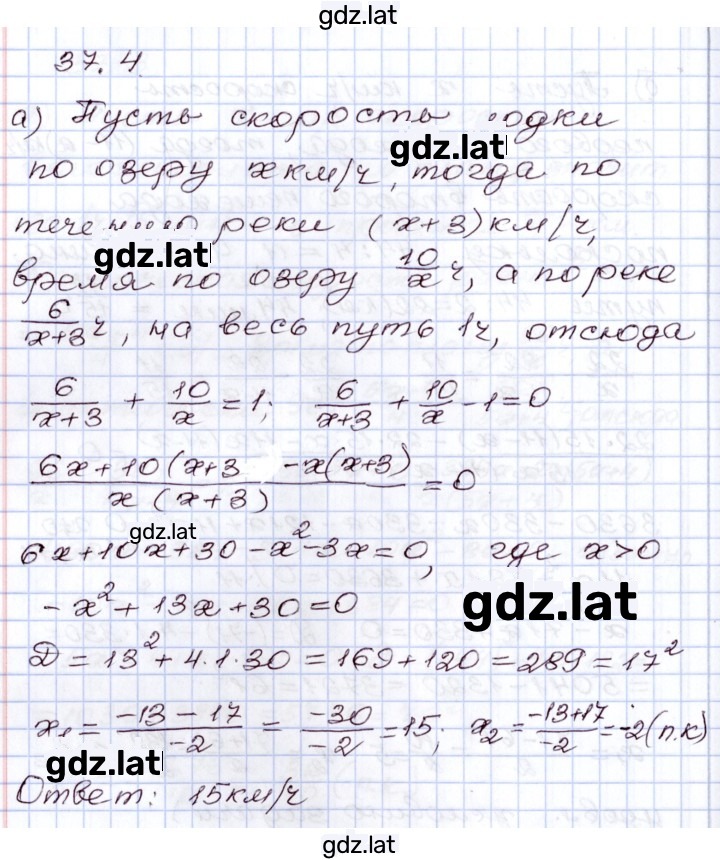 gdz.lat
37.4
а) Пусть скорость одки
gdz.lat
по озеру x км/ч, тогда по
тече реки (x+3) км/ч,
gdz.lat
время по озеру 10/x ч, а по реке
6/(x+3) ч, на весь путь 1ч, отсюда
6/(x+3) + 10/x = 1; 6/(x+3) + 10/x - 1 = 0
(6x+10(x+3 -x(x+3))/(x(x+3)) = 0
gdz.lat
6x+10x+30-x²-3x=0, где x>0
-x²+13x+30=0
gdz.lat
D=13²+4.1.30=169+120=289=17²
x₁ = (-13-17)/(-2) = (-30)/(-2) = 15; x₂ = (-13+17)/(-2) = -2 (п.к)
gdz.lat
Ответ: 15км/ч
gdz.lat